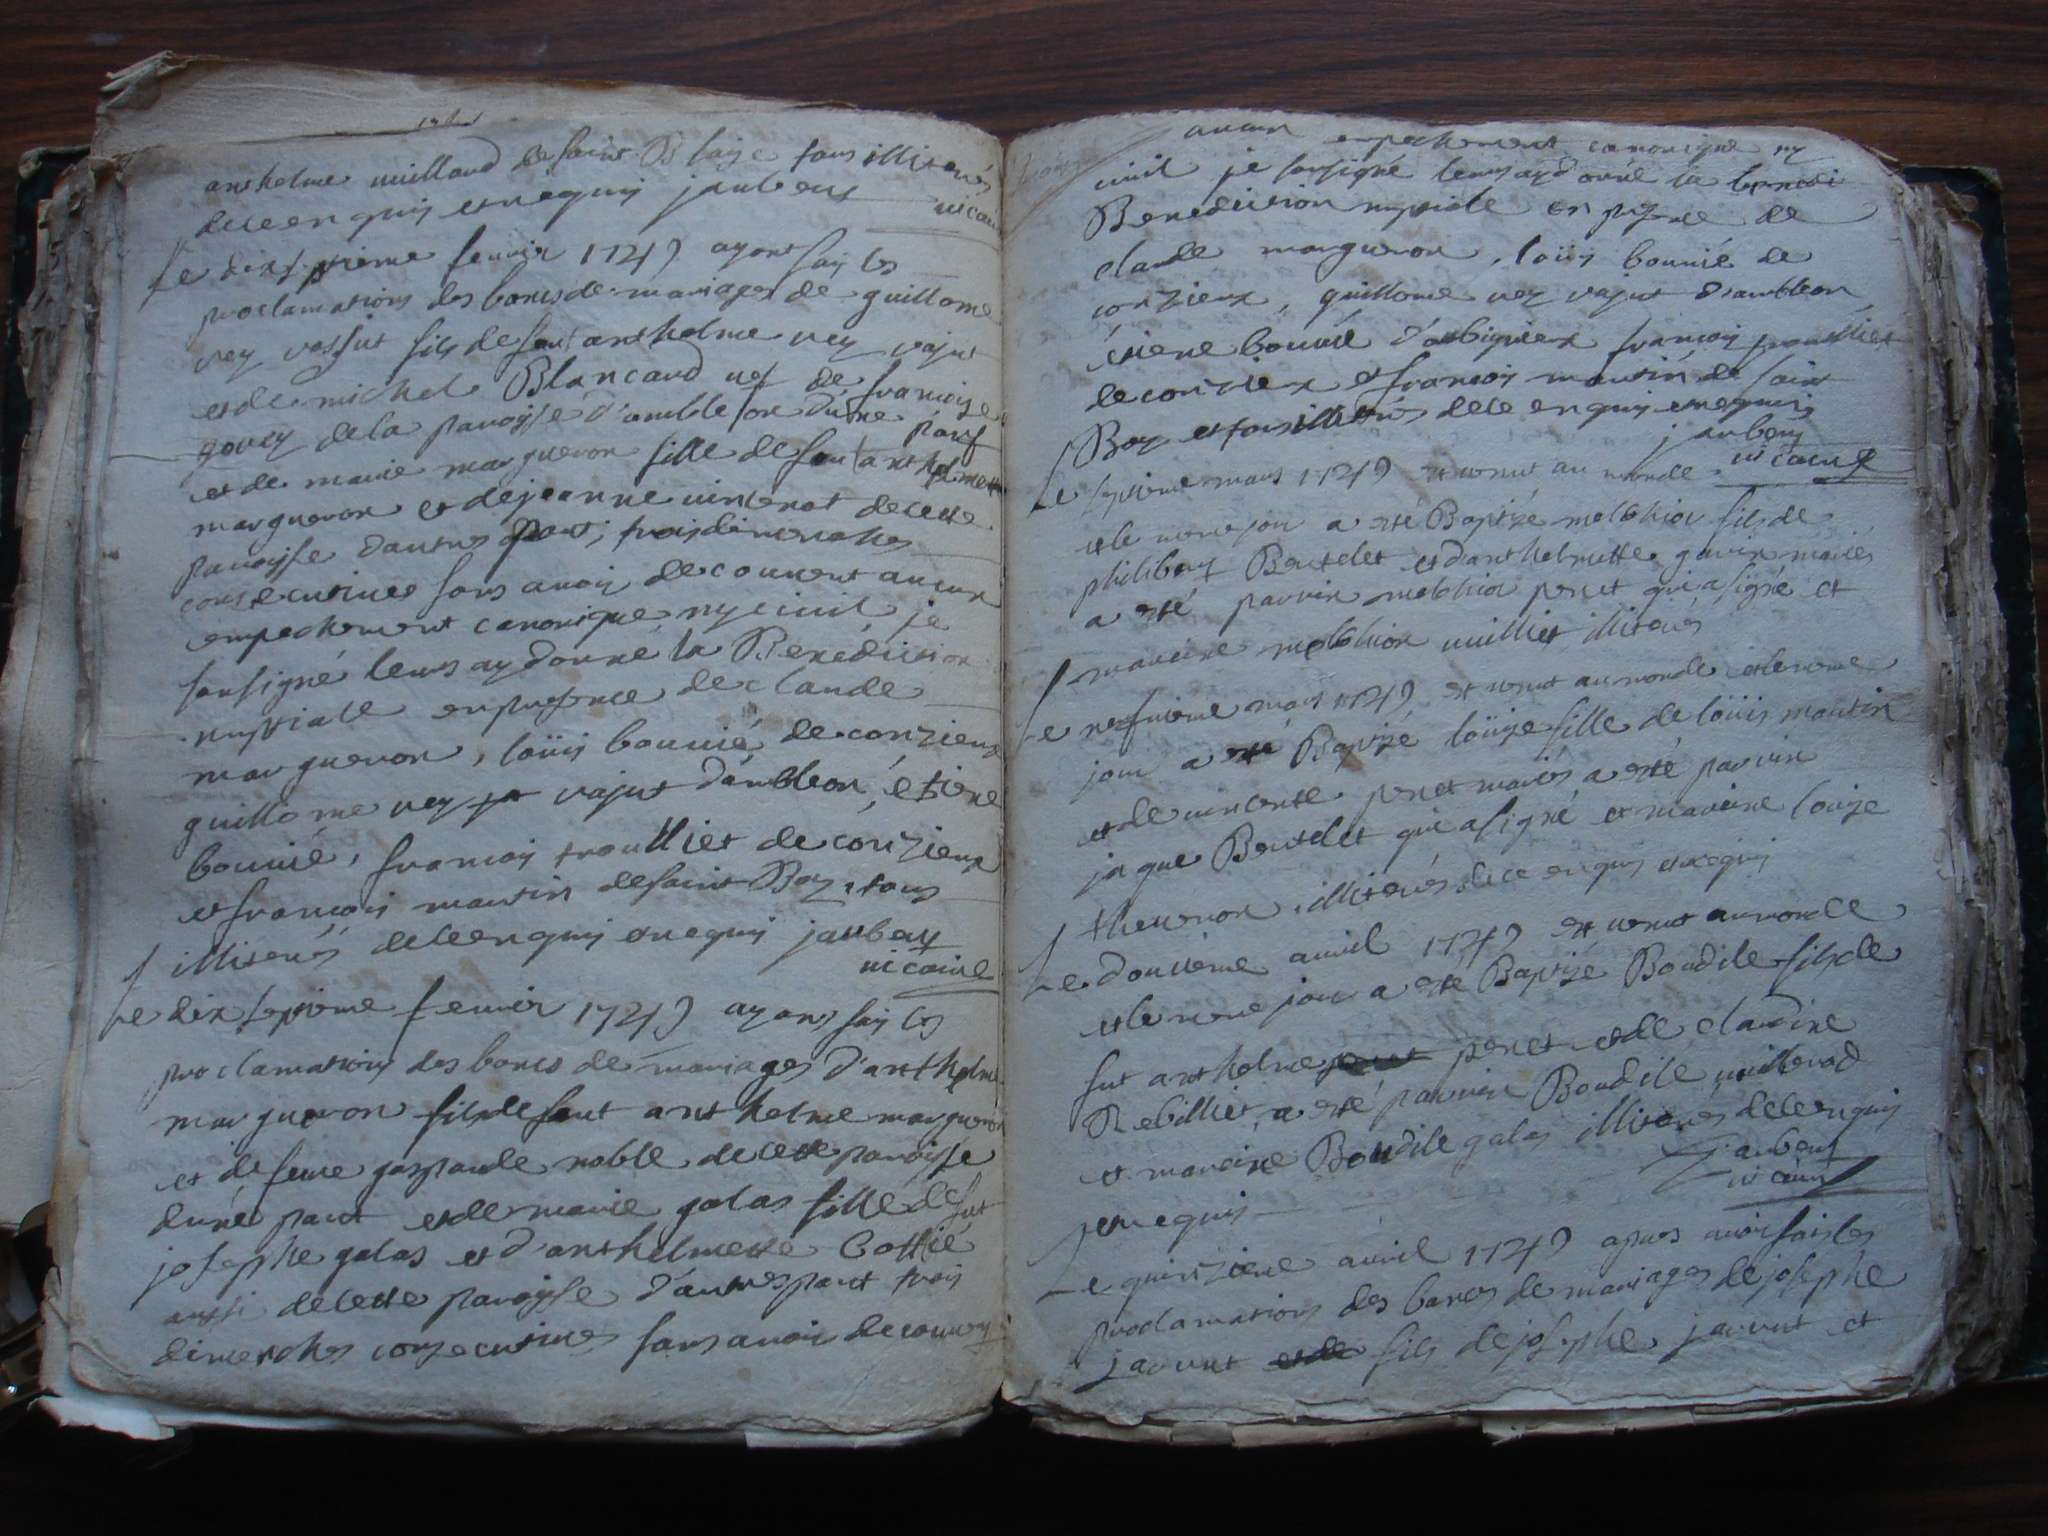 anthelme milland de saint Blaise tous illiterés
de ce enquis et requis jaubert
vicaire
Le dixseptieme fevrier 1749 ayant fait les
proclamations des bancs de mariages de guillome
rey vajut fils de feu anthelme rey vajut
et de michel Blancard vef de françoise
gouey de la paroisse d'ambleon d'une part
et de marie margueron fille de feu anthelme
margueron et de jeanne vincenot de cette
paroisse d'autres part, trois dimenches
consecutives sans avoir decouvert aucun
empechement canonique ny civil, je
sousigné leurs ay donné la Benediction
nuptiale en presence de claude
margueron, loüis bouvié de conzieux
guillome rey vajut d'ambleon, etiene
bouvié, françois trouilliet de conzieux
et françois martin de saint Boy, tous
illiterés de ce enquis et requis jaubert
vicaire
Le dix septieme fevrier 1749 ayant fait les
proclamations des bancs de mariages d'anthelme
margueron fils de feut anthelme margueron
et de feue gasparde noble de cette paroisse
d'une part et de marie galas fille de feut
josephe galas et d'anthelmette Cottié
aussi de cette paroisse d'autres part trois
dimenches consecutives sans avoir decouvert
aucun empechement canonique ny
civil je sousigné leurs ay donné la
Benediction nuptiale en presence de
claude margueron, loüis bouvié de
conzieux, guillome rey vajut d'ambleon
etiene bouvié d'arbignieux françois trouilliet
de conzieux et françois martin de saint
Boy et tous illiterés de ce enquis et requis
jaubert
vicaire
Le septieme mars 1749 est venut au monde
et le meme jour a esté Baptizé melchior fils de
philibert Beutelet et d'anthelmette gavin mariés
a esté parrin melchior peret qui a signé et
mareine melchion milliet illiterés
Le neufvieme mars 1749 est venut au monde et le meme
jour a esté Baptizé loüize fille de loüis martin
et de vincente peret mariés a esté parrin
jaque Beutelet qui a signé et mareine loüize
thevenon illiterés de ce enquis et requis
Le douzieme avril 1749 est venut au monde
et le meme jour a esté Baptizé Boudile fils de
fut anthelme peret et de claudine
Rebilliet, a esté parrin Boudile millerod
et mareine Boudile galas illiterés de ce enquis
et requis
jaubert
vicaire
Le quinzieme avril 1749 apres avoir fait les
proclamations des bancs de mariages de josephe
jarvut et de fils de josephe jarvut et